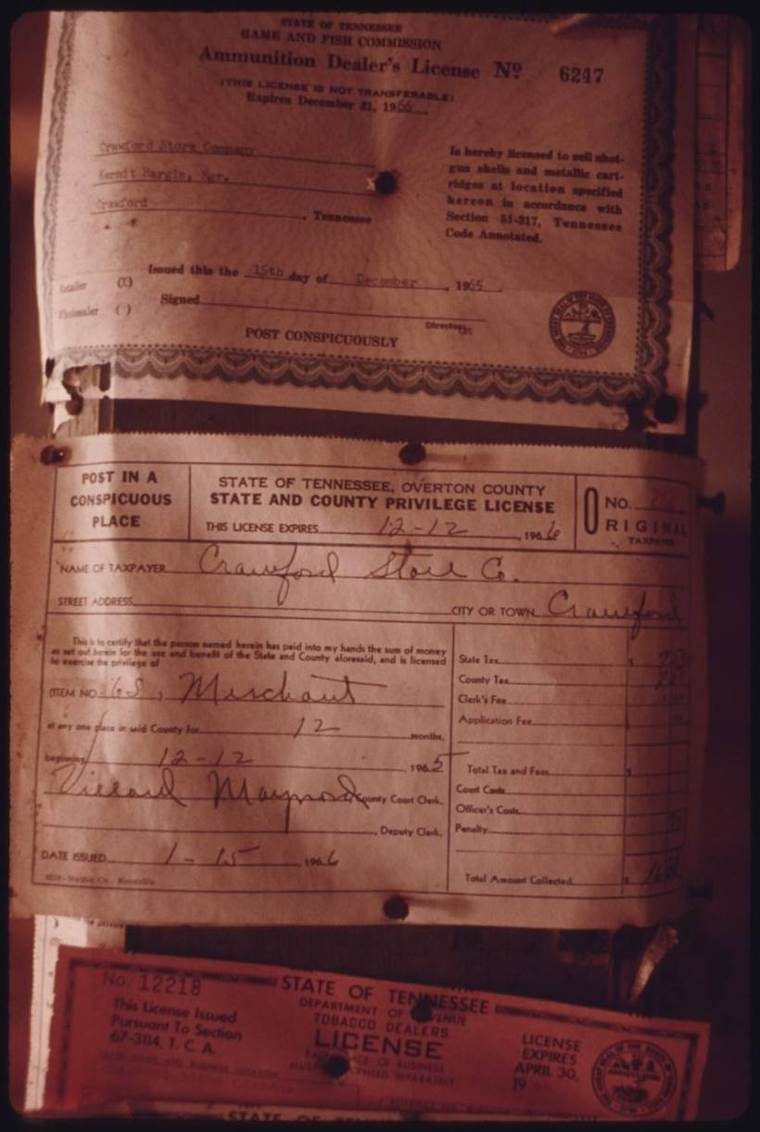 STATE OF TENNESSEE
GAME AND FISH COMMISSION
Ammunition Dealer's License Nº 6247
(THIS LICENSE IS NOT TRANSFERABLE)
Expires December 31, 1966
Crawford Store Company
Is hereby licensed to sell shot-
gun shells and metallic cart-
ridges at location specified
herein in accordance with
Section 51-317, Tennessee
Code Annotated.
Mgr.
Crawford, Tennessee
Issued this the 15th day of December, 1965
Retailer (X)
Wholesaler ( )
Signed
Director
POST CONSPICUOUSLY
POST IN A
CONSPICUOUS
PLACE
STATE OF TENNESSEE, OVERTON COUNTY
STATE AND COUNTY PRIVILEGE LICENSE
THIS LICENSE EXPIRES 12-12, 1966
NO.
ORIGINAL
TAXPAYER
NAME OF TAXPAYER Crawford Store Co.
STREET ADDRESS CITY OR TOWN Crawford
This is to certify that the person named herein has paid into my hands the sum of money
as set out herein for the use and benefit of the State and County aforesaid, and is licensed
to exercise the privilege of
ITEM NO. 68, Merchant
at any one place in said County for 12 months,
beginning 12-12 1965
Willard Maynord County Court Clerk.
, Deputy Clerk.
DATE ISSUED 1-15, 1966
State Tax $
County Tax
Clerk's Fee
Application Fee
Total Tax and Fees $
Court Costs
Officer's Costs
Penalty
Total Amount Collected $
No. 12218
This License Issued
Pursuant To Section
67-3114, T. C. A.
STATE OF TENNESSEE
DEPARTMENT OF REVENUE
TOBACCO DEALERS
LICENSE
LICENSE
EXPIRES
APRIL 30,
19
STATE OF